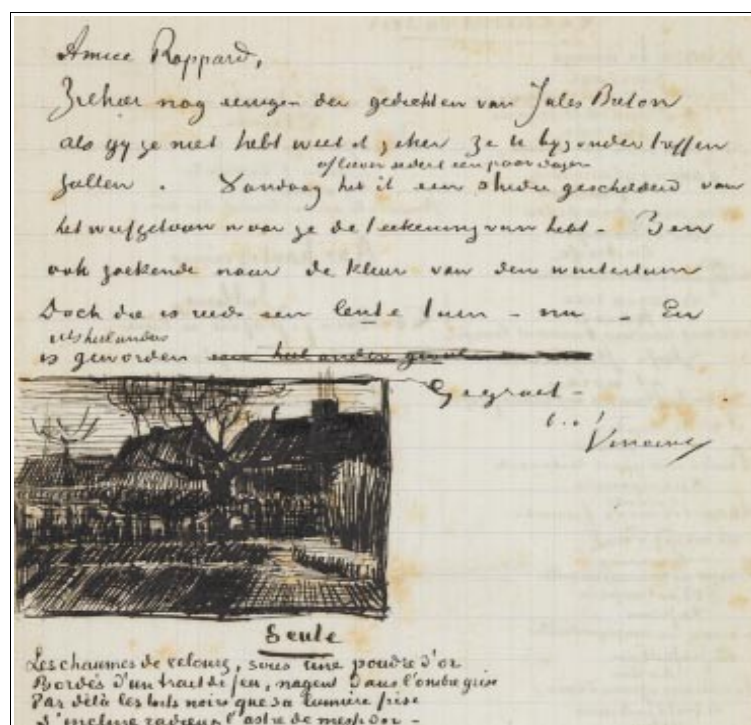 Amice Rappard,
Ziehier nog eenigen der gedichten van Jules Breton
als gij ze niet hebt weet ik zeker ze U bijzonder treffen
of liever sedert een paar dagen
zullen. Vandaag heb ik een studie geschilderd van
het weefgetouw waar je de teekening van hebt - Ben
ook zoekende naar de kleur van den wintertuin
Doch die is reeds een lente tuin - nu - En
iets heel anders
is geworden een heel ander geval
Gegroet -
t.. t
Vincent
Seule
Les chaumes de velours, sous une poudre d'or
Bordés d'un trait de feu, nagent dans l'ombre grise
Par délà les toits noirs que sa lumière frise
S'incline radieux l'astre de messidor -